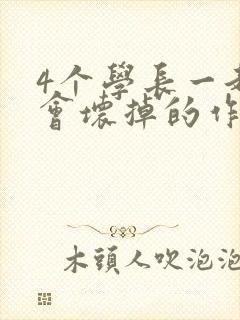 4个學長一
會壞掉的作
木頭人吹泡泡